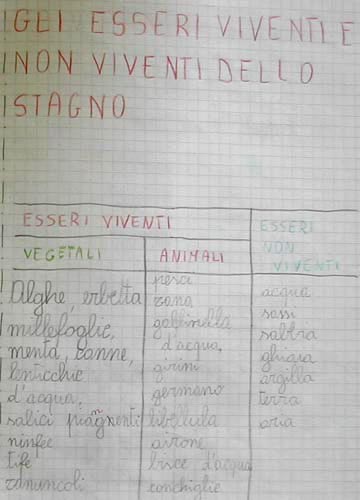 GLI ESSERI VIVENTI E
NON VIVENTI DELLO
STAGNO
ESSERI VIVENTI
ESSERI
NON
VIVENTI
VEGETALI
ANIMALI
Alghe, erbetta
millefoglie,
menta, canne,
lenticchie
d'acqua,
salici piangenti
ninfee
tife
ranuncoli
pesci
rana
gallinella
d'acqua,
girini
germano
libellula
airone
bisce d'acqua
conchiglie
acqua
sassi
sabbia
ghiaia
argilla
terra
aria